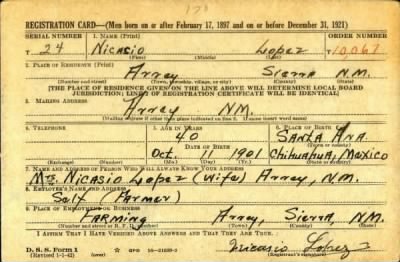 REGISTRATION CARD—(Men born on or after February 17, 1897 and on or before December 31, 1921)
SERIAL NUMBER 1. NAME (Print) ORDER NUMBER
T 24 Nicasio Lopez T 10,067
(First) (Middle) (Last)
2. PLACE OF RESIDENCE (Print)
Arrey Sierra N.M.
(Number and street) (Town, township, village, or city) (County) (State)
[THE PLACE OF RESIDENCE GIVEN ON THE LINE ABOVE WILL DETERMINE LOCAL BOARD
JURISDICTION; LINE 2 OF REGISTRATION CERTIFICATE WILL BE IDENTICAL]
3. MAILING ADDRESS
Arrey NM.
[Mailing address if other than place indicated on line 2. If same insert word same]
4. TELEPHONE 5. AGE IN YEARS 6. PLACE OF BIRTH
40 SANTA ANA.
DATE OF BIRTH (Town or county)
Oct. 11 1901 Chihuahua, Mexico
(Exchange) (Number) (Mo.) (Day) (Yr.) (State or country)
7. NAME AND ADDRESS OF PERSON WHO WILL ALWAYS KNOW YOUR ADDRESS
Mrs Nicasio Lopez (Wife) Arrey, N.M.
8. EMPLOYER'S NAME AND ADDRESS
Self (Farmer)
9. PLACE OF EMPLOYMENT OR BUSINESS
FARMING Arrey, Sierra, N.M.
(Number and street or R. F. D. number) (Town) (County) (State)
I AFFIRM THAT I HAVE VERIFIED ABOVE ANSWERS AND THAT THEY ARE TRUE.
D. S. S. Form 1 GPO
(Revised 1-1-42) (over) Nicasio Lopez
(Registrant's signature)